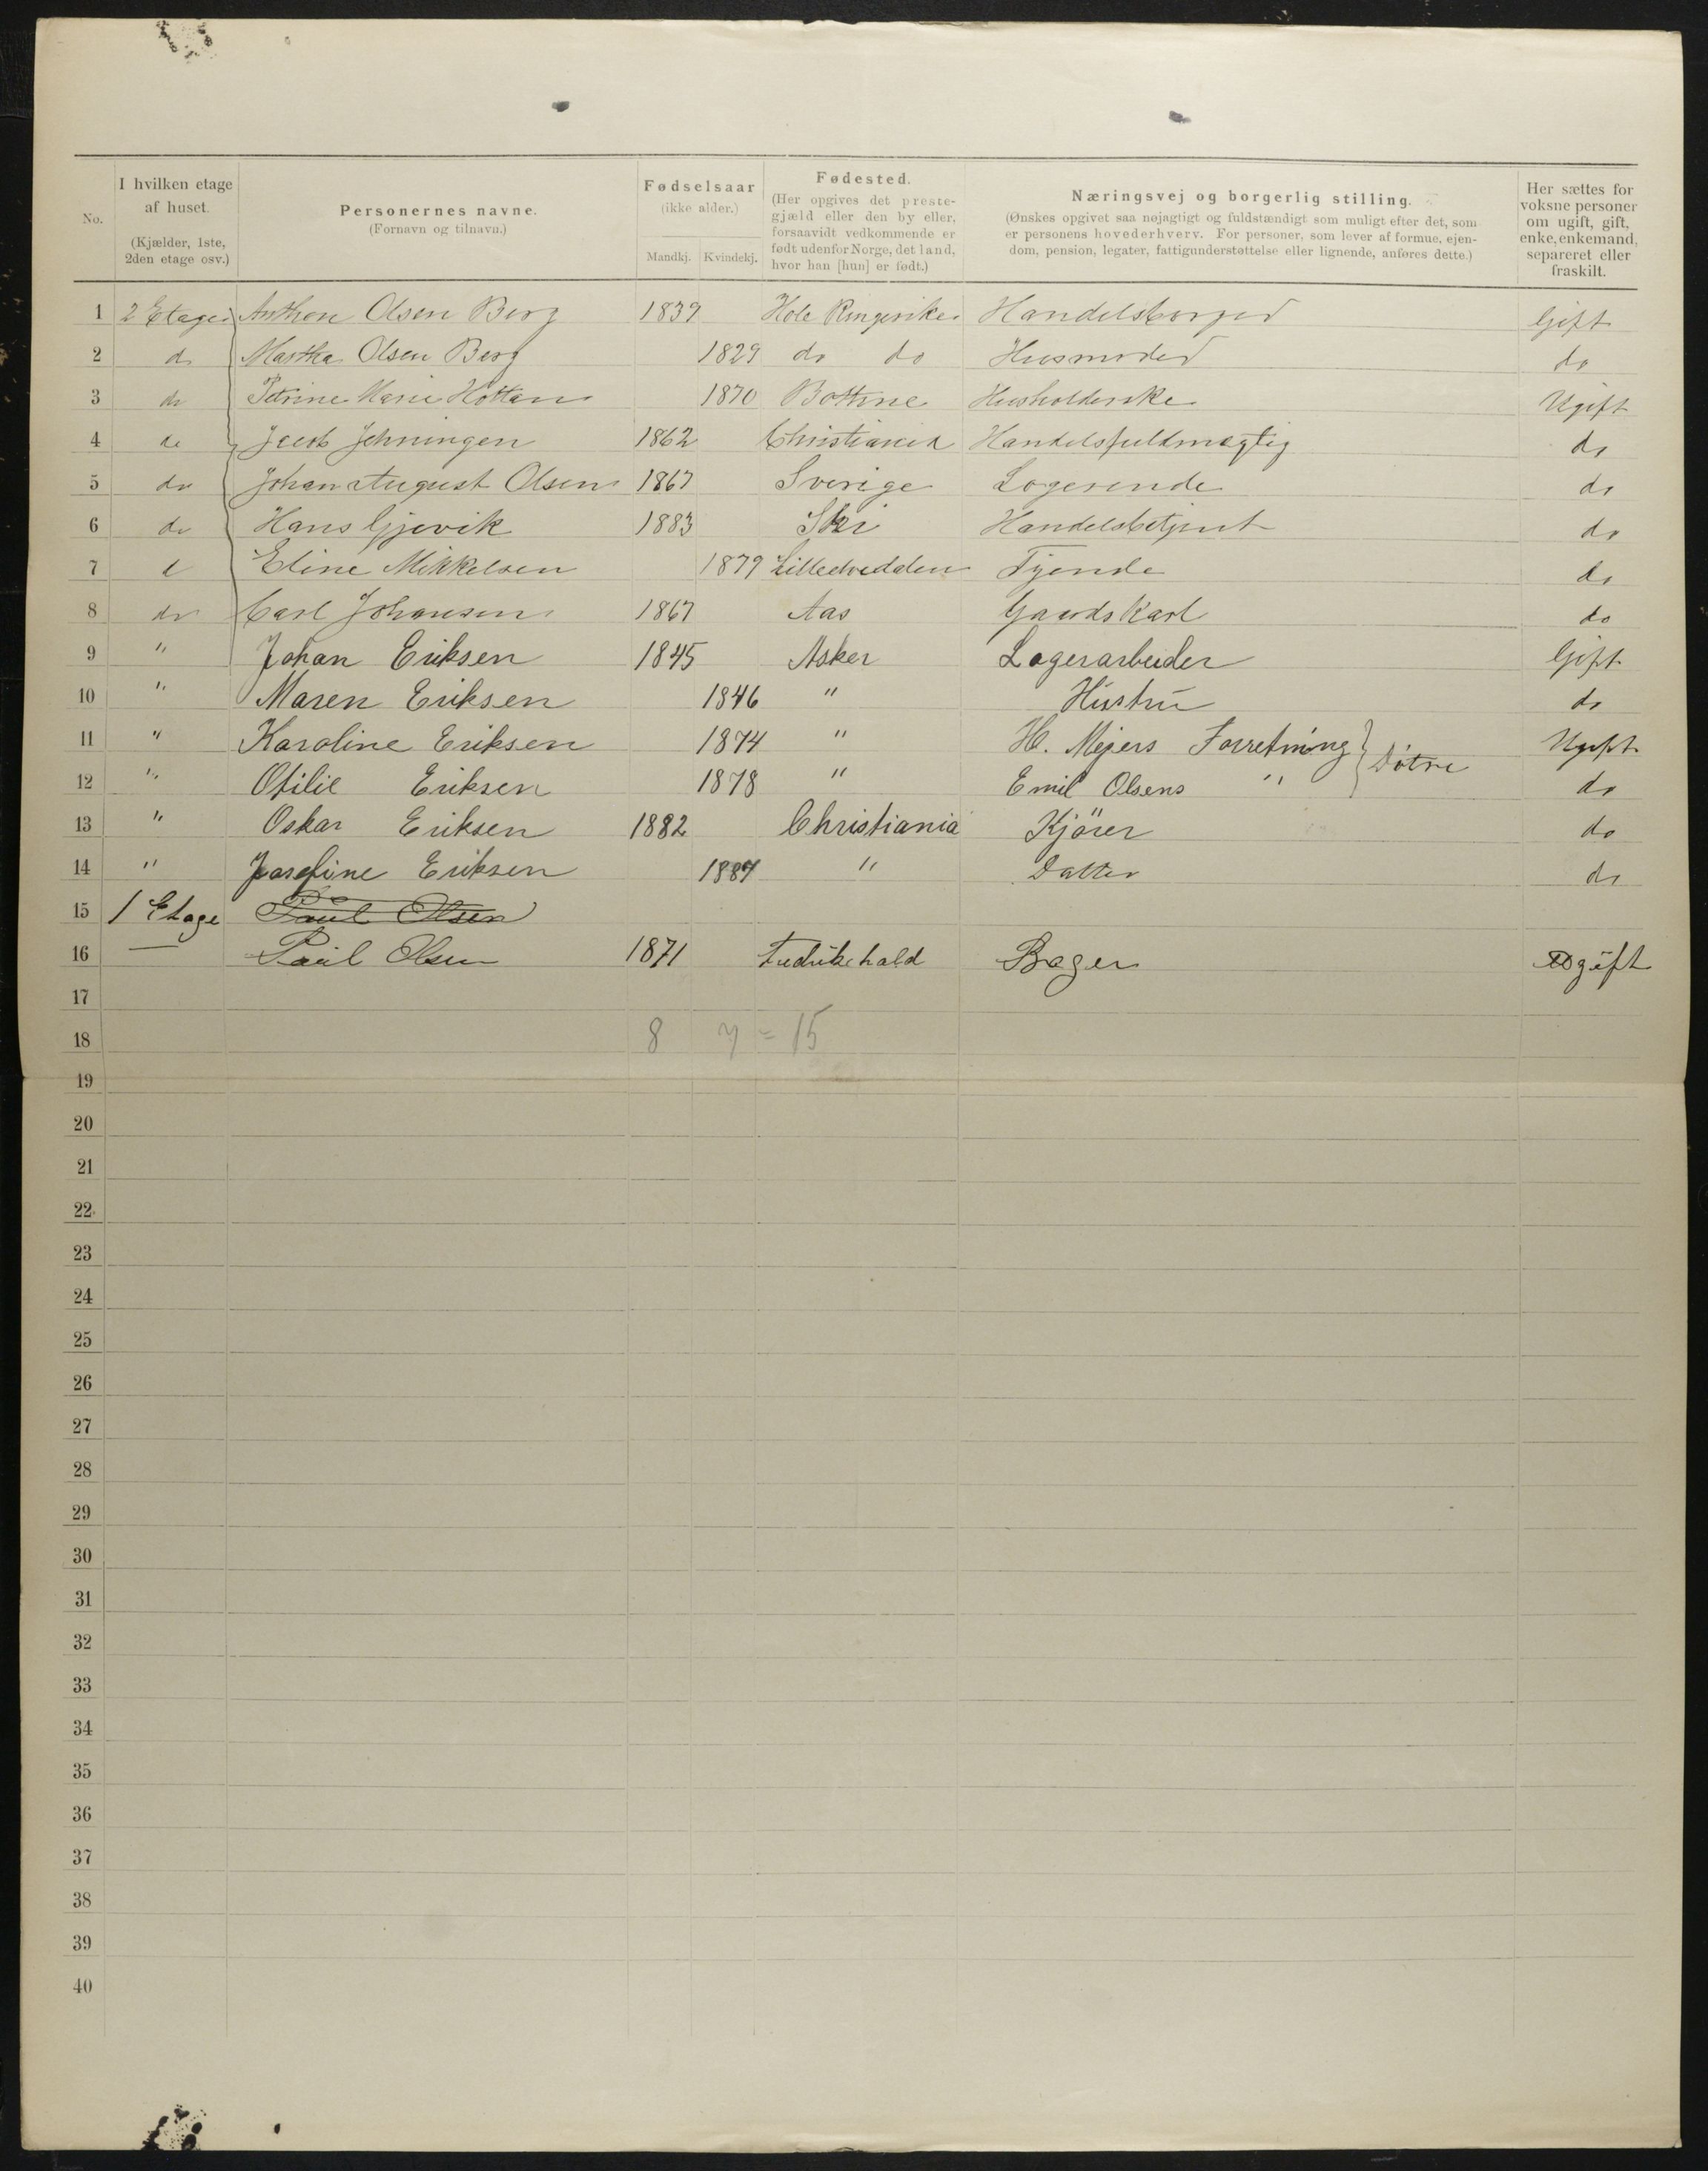 No.
I hvilken etage af huset. (Kjælder, 1ste, 2den etage osv.)
Personernes navne. (Fornavn og tilnavn.)
Fødselsaar (ikke alder.) Mandkj. Kvindekj.
Fødested. (Her opgives det prestegjæld eller den by eller, forsaavidt vedkommende er født udenfor Norge, det land, hvor han [hun] er født.)
Næringsvej og borgerlig stilling. (Ønskes opgivet saa nøjagtigt og fuldstændigt som muligt efter det, som er personens hovederhverv. For personer, som lever af formue, ejendom, pension, legater, fattigunderstøttelse eller lignende, anføres dette.)
Her sættes for voksne personer om ugift, gift, enke, enkemand, separeret eller fraskilt.
1 2 Etage Anthon Olsen Berg 1839 Hole Ringerike Handelsborger Gift
2 do Martha Olsen Berg 1829 do do Husmoder do
3 do Petrine Marie 1870 Husholderske Ugift
4 do Jacob 1862 Christiania Handelsfuldmægtig do
5 do Johan August Olsen 1867 Sverige Logerende do
6 do Hans Gjøvik 1883 Ski Handelsbetjent do
7 d Eline Mikkelsen 1879 Tjende do
8 do Carl Johansen 1867 Aas Gaards Karl do
9 " Johan Eriksen 1845 Asker Lagerarbeider Gift
10 " Maren Eriksen 1846 " Hustru do
11 " Karoline Eriksen 1874 " H. Mejers Forretning } Døtre Ugift
12 " Otilie Eriksen 1878 " Emil Olsens " do
13 " Oskar Eriksen 1882 Christiania Kjörer do
14 " Josefine Eriksen 1887 " Datter do
15 1 Etage Paul Olsen
16 — Paul Olsen 1871 Fredrikshald Bager Ugift
17
18 8 7 = 15
19
20
21
22
23
24
25
26
27
28
29
30
31
32
33
34
35
36
37
38
39
40